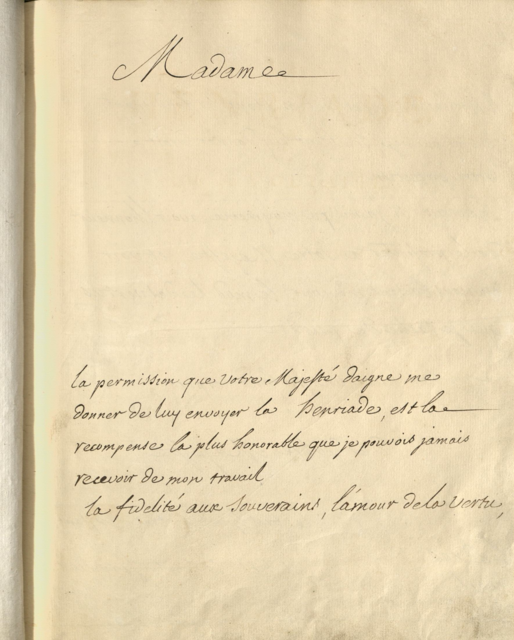 Madame
la permission que Votre Majesté daigne me
donner de luy envoyer la henriade, est la
recompense la plus honorable que je pouvois jamais
recevoir de mon travail
la fidelité aux souverains, l'amour de la vertu,